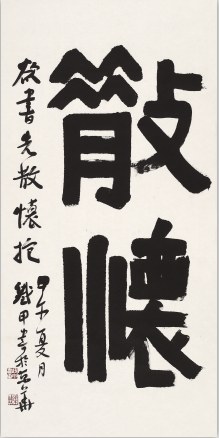 散懷
欲書先散懷抱
甲午夏月